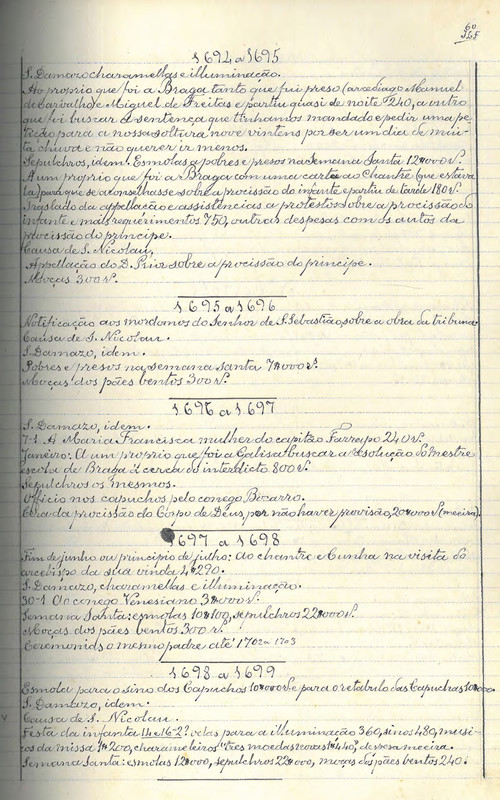 60
1694 a 1695
S. Damazo charamellas e illuminação.
Ao proprio que foi a Braga tanto que fui preso (arcediago Manuel
de Carvalho e Miguel de Freitas e partiu quasi de noite $240, a outro
que foi buscar a sentença que tinhamos mandado e pedir uma pe-
tição para a nossa soltura nove vintens por ser um dia de mui-
ta chuva e não querer ir menos.
Sepulchros, idem. Esmolas a pobres e presos na semana Santa 12$000 rs.
A um proprio que foi a Braga com uma carta ao Chantre (que estava
la) para que se aconselhasse sobre a procissão do infante e partiu de tarde 180 rs.
Traslado da appellação e assistencias a protestos sobre a procissão do
infante e mais requerimentos 750, outras despesas com os autos da
procissão do principe.
Causa de S. Nicolau.
Appellação do D. Prior sobre a procissão do principe.
Moças 300 rs.
1695 a 1696
Notificação aos mordomos do Senhor de S. Sebastião, sobre a obra da tribuna
Causa de S. Nicolau.
S. Damazo, idem.
Pobres e presos na semana santa 7$000 rs.
Moças dos pães bentos 300 rs.
1696 a 1697
S. Damazo, idem.
7-1 A Maria Francisca mulher do capitão Farrapo 240 rs.
Janeiro: A um proprio que foi a Galisa buscar a resolução do mestre
escola de Braga á cerca do interdicto 800 rs.
Sepulchros os mesmos.
Officio nos capuchos pelo conego Bocarro.
Cera da procissão do Corpo de Deus, por não haver provisão, 20$000 rs (meeira).
1697 a 1698
Fim de junho ou principio de julho: Ao chantre e Cunha na visita do
arcebispo da sua vinda 4$290.
S. Damazo, charamellas e illuminação.
30-1 Ao conego Venesiano 3$000 rs.
Semana Santa: esmolas 10$100, sepulchros 22$000 rs.
Moças dos pães bentos 300 rs.
Ceremonias o mesmo padre até 1702 a 1703
1698 a 1699
Esmola para o sino dos Capuchos 10$000 rs e para o retabulo das Capuchas 10$000.
S. Damazo, idem.
Causa de S. Nicolau.
Festa da infanta 14 e 16-2? velas para a illuminação 360, sinos 480, musi-
cos da missa 1$200, charameleiros "tres moedas novas 1$440", dessem meeira.
Semana Santa: esmolas 12$000, sepulchros 22$000, moças dos pães bentos 240.